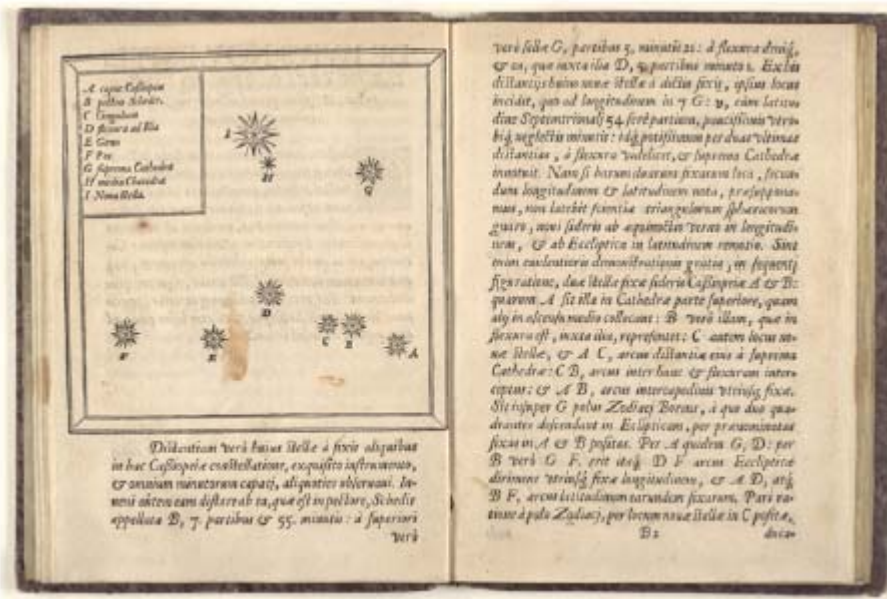 A caput Cassiopeæ
B pectus Schedir.
C Cingulum
D flexura ad Ilia
E Genu
F Pes
G suprema Cathedræ
H media Chatedræ
I Noua stella.
I
H
G
D
C
B
F
E
A
Distantiam verò huius stellæ à fixis aliquibus
in hac Cassiopeiæ constellatione, exquisito instrumento,
& omnium minutorum capacj, aliquoties obseruaui. In-
ueni autem eam distare ab ea, quæ est in pectore, Schedir
appellata B, 7. partibus & 55. minutis: à superiori
verò
verò stella G, partibus 5. minutis 21: à flexura
& ea, quæ iuxta ilia D, partibus minuto 1. Ex his
distantijs huius nouæ stellæ à dictis fixis, ipsius locus
incidit, quo ad longitudinem in 7 G: cum latitu-
dine Septentrionalj 54. ferè partium, pauciſſimis vtro-
biq́, neglectis minutis: idq́, potiſſimum per duas vltimas
distantias, à flexura videlicet, & suprema Cathedræ
innotuit. Nam si harum duarum fixarum loca, secun-
dum longitudinem & latitudinem nota, præsuppona-
mus, non latebit scientiæ triangulorum sphæricorum
gnaro, noui sideris ab æquinoctio verno in longitudi-
nem, & ab Eccliptica in latitudinem remotio. Sint
enim euidentioris demonstrationis gratia, in sequentj
figuratione, duæ stellæ fixæ sideris Cassiopeiæ A & B:
quarum A sit illa in Cathedræ parte superiore, quam
alij in ascensu medio collocant: B verò illam, quæ in
flexura est, iuxta ilia, repræsentet: C autem locus no-
uæ stellæ, & A C, arcus distantiæ eius à suprema
Cathedræ: C B, arcus inter hanc & flexuram inter-
ceptus: & A B, arcus intercapedinis vtriusq́, fixæ.
Sit insuper G polus Zodiacj Boreus, à quo duo qua-
drantes descendant in Eclipticam, per prænominatas
fixas in A & B positas. Per A quidem G, D: per
B verò G F. erit itaq́ D F arcus Eccliptices
dirimens vtriusq́, fixæ longitudinem, & A D, atq́,
B F, arcus latitudinum earundem fixarum. Pari ra-
tione à polo Zodiacj, per locum nouæ stellæ in C positæ,
B2
duca-